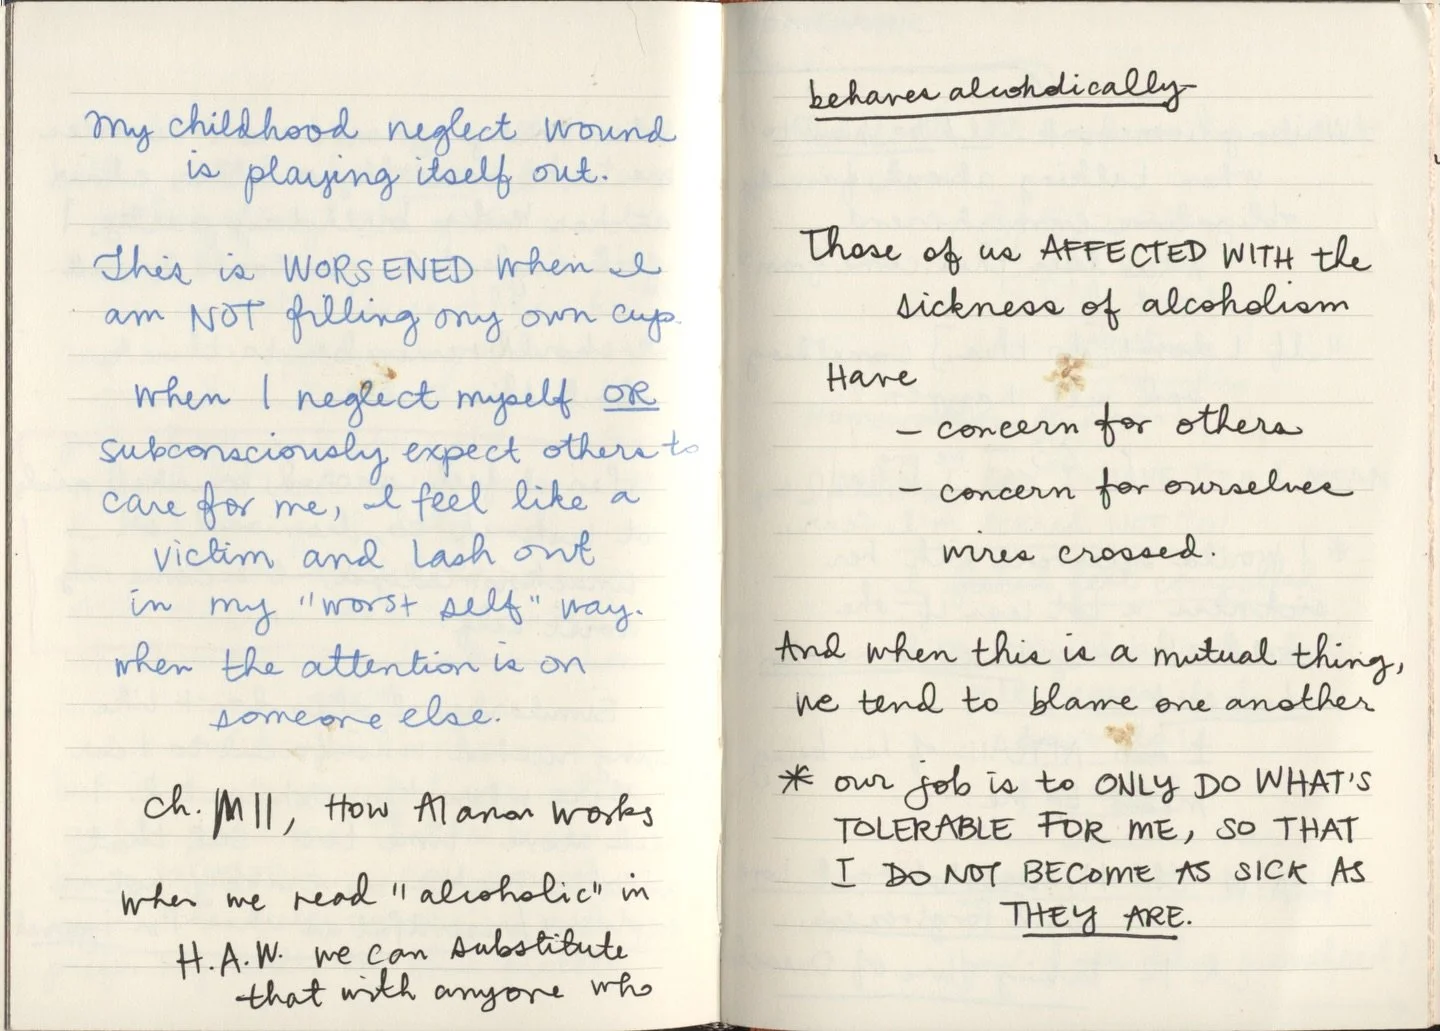 My childhood neglect wound
is playing itself out.
This is WORSENED when I
am NOT filling my own cup.
When I neglect myself OR
subconsciously expect others to
care for me, I feel like a
victim and lash out
in my "worst self" way.
when the attention is on
someone else.
Ch. 11, How Alanon Works
when we read "alcoholic" in
H.A.W. we can substitute
that with anyone who
behaves alcoholically
Those of us AFFECTED WITH the
sickness of alcoholism
Have
- concern for others
- concern for ourselves
wires crossed.
And when this is a mutual thing,
we tend to blame one another
* our job is to ONLY DO WHAT'S
TOLERABLE FOR ME, SO THAT
I DO NOT BECOME AS SICK AS
THEY ARE.